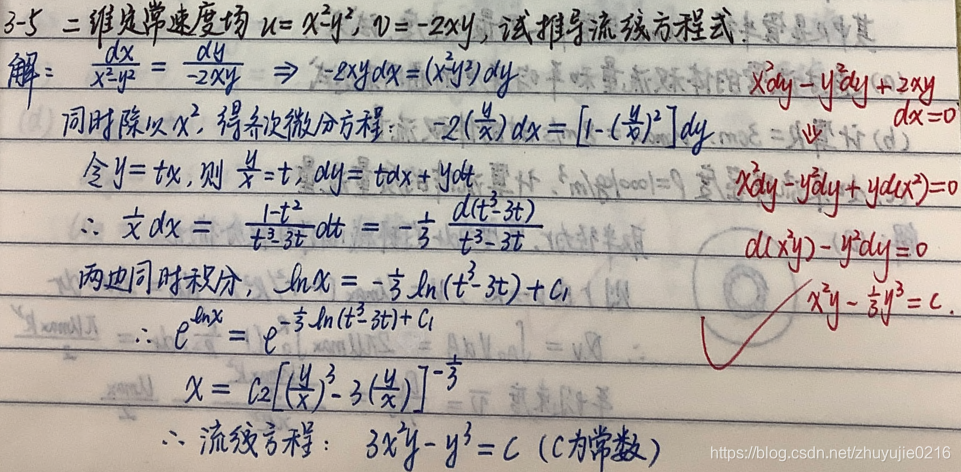 3-5 二维定常速度场 u=x²-y², v=-2xy, 试推导流线方程式
解: dx/(x²-y²) = dy/(-2xy) ⇒ -2xydx=(x²-y²)dy
同时除以x², 得齐次微分方程: -2(y/x)dx=[1-(y/x)²]dy
令y=tx, 则 y/x=t, dy=tdx+ydt
∴ 1/x dx = (1-t²)/(t³-3t) dt = -1/3 d(t³-3t)/(t³-3t)
两边同时积分, lnx = -1/3 ln(t³-3t)+C₁
∴ e^{lnx} = e^{-1/3 ln(t³-3t)+C₁}
x = C₂[(y/x)³-3(y/x)]^{-1/3}
∴ 流线方程: 3x²y-y³=C (C为常数)
x²dy-y²dy+2xy
dx=0
⇓
x²dy-y²dy+yd(x²)=0
d(x²y)-y²dy=0
x²y-1/3y³=C.
https://blog.csdn.net/zhuyujie0216